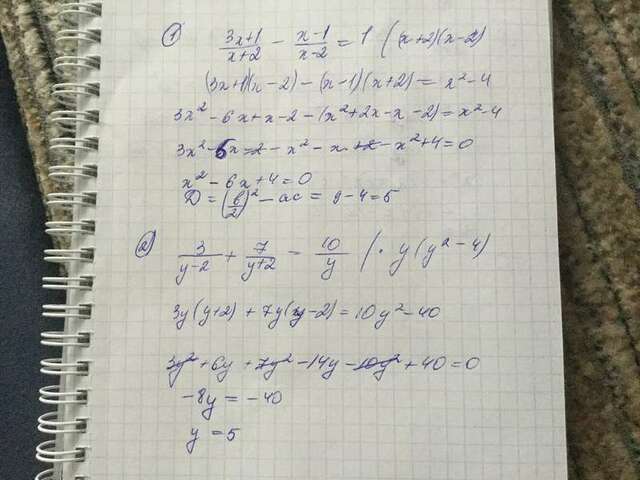 1) (3x+1)/(x+2) - (x-1)/(x-2) = 1 | (x+2)(x-2)
(3x+1)(x-2) - (x-1)(x+2) = x²-4
3x² - 6x + x - 2 - (x² + 2x - x - 2) = x² - 4
3x² - 5x - 2 - x² - x + 2 - x² + 4 = 0
x² - 6x + 4 = 0
D = (b/2)² - ac = 9 - 4 = 5
2) 3/(y-2) + 7/(y+2) = 10/y | · y(y² - 4)
3y(y+2) + 7y(y-2) = 10y² - 40
3y² + 6y + 7y² - 14y - 10y² + 40 = 0
-8y = -40
y = 5